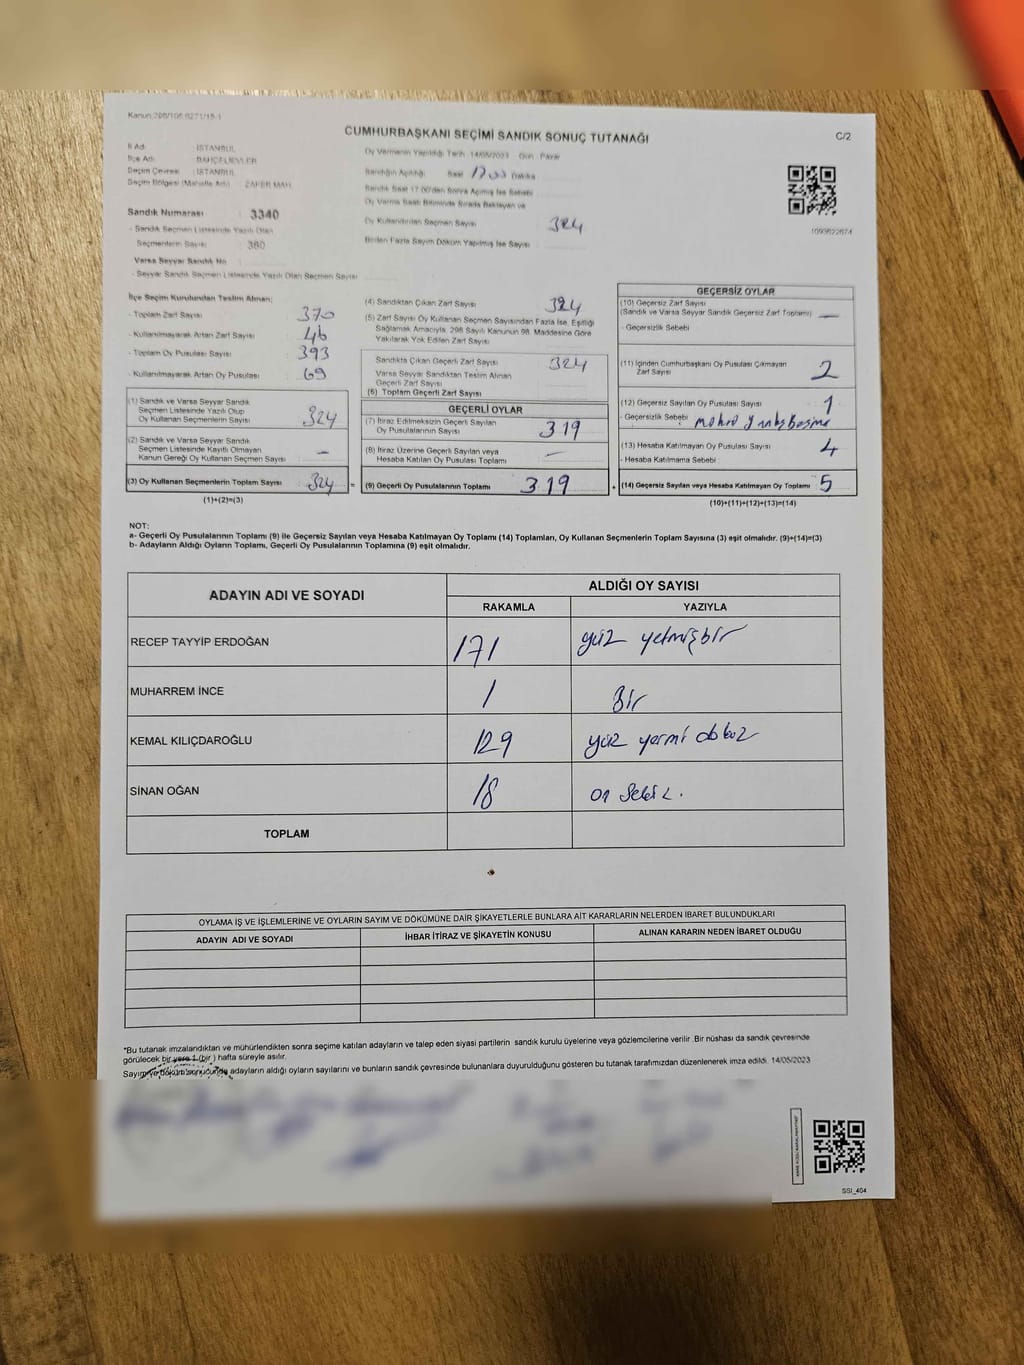 Kanun 298/106 6271/15-1
CUMHURBAŞKANI SEÇİMİ SANDIK SONUÇ TUTANAĞI
C/2
İl Adı : İSTANBUL
İlçe Adı : BAHÇELİEVLER
Seçim Çevresi : İSTANBUL
Seçim Bölgesi (Mahalle Adı) : ZAFER MAH.
Sandık Numarası : 3340
- Sandık Seçmen Listesinde Yazılı Olan
Seçmenlerin Sayısı : 360
Varsa Seyyar Sandık No
- Seyyar Sandık Seçmen Listesinde Yazılı Olan Seçmen Sayısı
Oy Vermenin Yapıldığı Tarih: 14/05/2023 Gün: Pazar
Sandığın Açıldığı Saat 17:00 Dakika
Sandık Saat 17.00'den Sonra Açılmış İse Sebebi
Oy Verme Saati Bitiminde Sırada Bekleyen ve
Oy Kullandırılan Seçmen Sayısı 324
Birden Fazla Sayım Döküm Yapılmış İse Sayısı
1093622674
İlçe Seçim Kurulundan Teslim Alınan:
- Toplam Zarf Sayısı 370
- Kullanılmayarak Artan Zarf Sayısı 46
- Toplam Oy Pusulası Sayısı 393
- Kullanılmayarak Artan Oy Pusulası 69
(1) Sandık ve Varsa Seyyar Sandık
Seçmen Listesinde Yazılı Olup
Oy Kullanan Seçmenlerin Sayısı 324
(2) Sandık ve Varsa Seyyar Sandık
Seçmen Listesinde Kayıtlı Olmayan
Kanun Gereği Oy Kullanan Seçmen Sayısı –
(3) Oy Kullanan Seçmenlerin Toplam Sayısı 324 =
(1)+(2)=(3)
(4) Sandıktan Çıkan Zarf Sayısı 324
(5) Zarf Sayısı Oy Kullanan Seçmen Sayısından Fazla İse, Eşitliği
Sağlamak Amacıyla, 298 Sayılı Kanunun 98. Maddesine Göre
Yakılarak Yok Edilen Zarf Sayısı
Sandıkta Çıkan Geçerli Zarf Sayısı 324
Varsa Seyyar Sandıktan Teslim Alınan
Geçerli Zarf Sayısı
(6) Toplam Geçerli Zarf Sayısı
GEÇERLİ OYLAR
(7) İtiraz Edilmeksizin Geçerli Sayılan
Oy Pusulalarının Sayısı 319
(8) İtiraz Üzerine Geçerli Sayılan veya
Hesaba Katılan Oy Pusulası Toplamı –
(9) Geçerli Oy Pusulalarının Toplamı 319 +
GEÇERSİZ OYLAR
(10) Geçersiz Zarf Sayısı
(Sandık ve Varsa Seyyar Sandık Geçersiz Zarf Toplamı) –
- Geçersizlik Sebebi
(11) İçinden Cumhurbaşkanı Oy Pusulası Çıkmayan
Zarf Sayısı 2
(12) Geçersiz Sayılan Oy Pusulası Sayısı 1
- Geçersizlik Sebebi
(13) Hesaba Katılmayan Oy Pusulası Sayısı 4
- Hesaba Katılmama Sebebi
(14) Geçersiz Sayılan veya Hesaba Katılmayan Oy Toplamı 5
(10)+(11)+(12)+(13)=(14)
NOT:
a- Geçerli Oy Pusulalarının Toplamı (9) ile Geçersiz Sayılan veya Hesaba Katılmayan Oy Toplamı (14) Toplamları, Oy Kullanan Seçmenlerin Toplam Sayısına (3) eşit olmalıdır. (9)+(14)=(3)
b- Adayların Aldığı Oyların Toplamı, Geçerli Oy Pusulalarının Toplamına (9) eşit olmalıdır.
ADAYIN ADI VE SOYADI
ALDIĞI OY SAYISI
RAKAMLA YAZIYLA
RECEP TAYYİP ERDOĞAN 171 yüz yetmişbir
MUHARREM İNCE 1 Bir
KEMAL KILIÇDAROĞLU 129 yüz yirmi dokuz
SİNAN OĞAN 18 on sekiz.
TOPLAM
OYLAMA İŞ VE İŞLEMLERİNE VE OYLARIN SAYIM VE DÖKÜMÜNE DAİR ŞİKAYETLERLE BUNLARA AİT KARARLARIN NELERDEN İBARET BULUNDUKLARI
ADAYIN ADI VE SOYADI İHBAR İTİRAZ VE ŞİKAYETİN KONUSU ALINAN KARARIN NEDEN İBARET OLDUĞU
*Bu tutanak imzalandıktan ve mühürlendikten sonra seçime katılan adayların ve talep eden siyasi partilerin sandık kurulu üyelerine veya gözlemcilerine verilir. Bir nüshası da sandık çevresinde
görülecek bir yere 1 (bir ) hafta süreyle asılır.
Sayım ve döküm sonucunda adayların aldığı oyların sayılarını ve bunların sandık çevresinde bulunanlara duyurulduğunu gösteren bu tutanak tarafımızdan düzenlenerek imza edildi. 14/05/2023
SSI_404